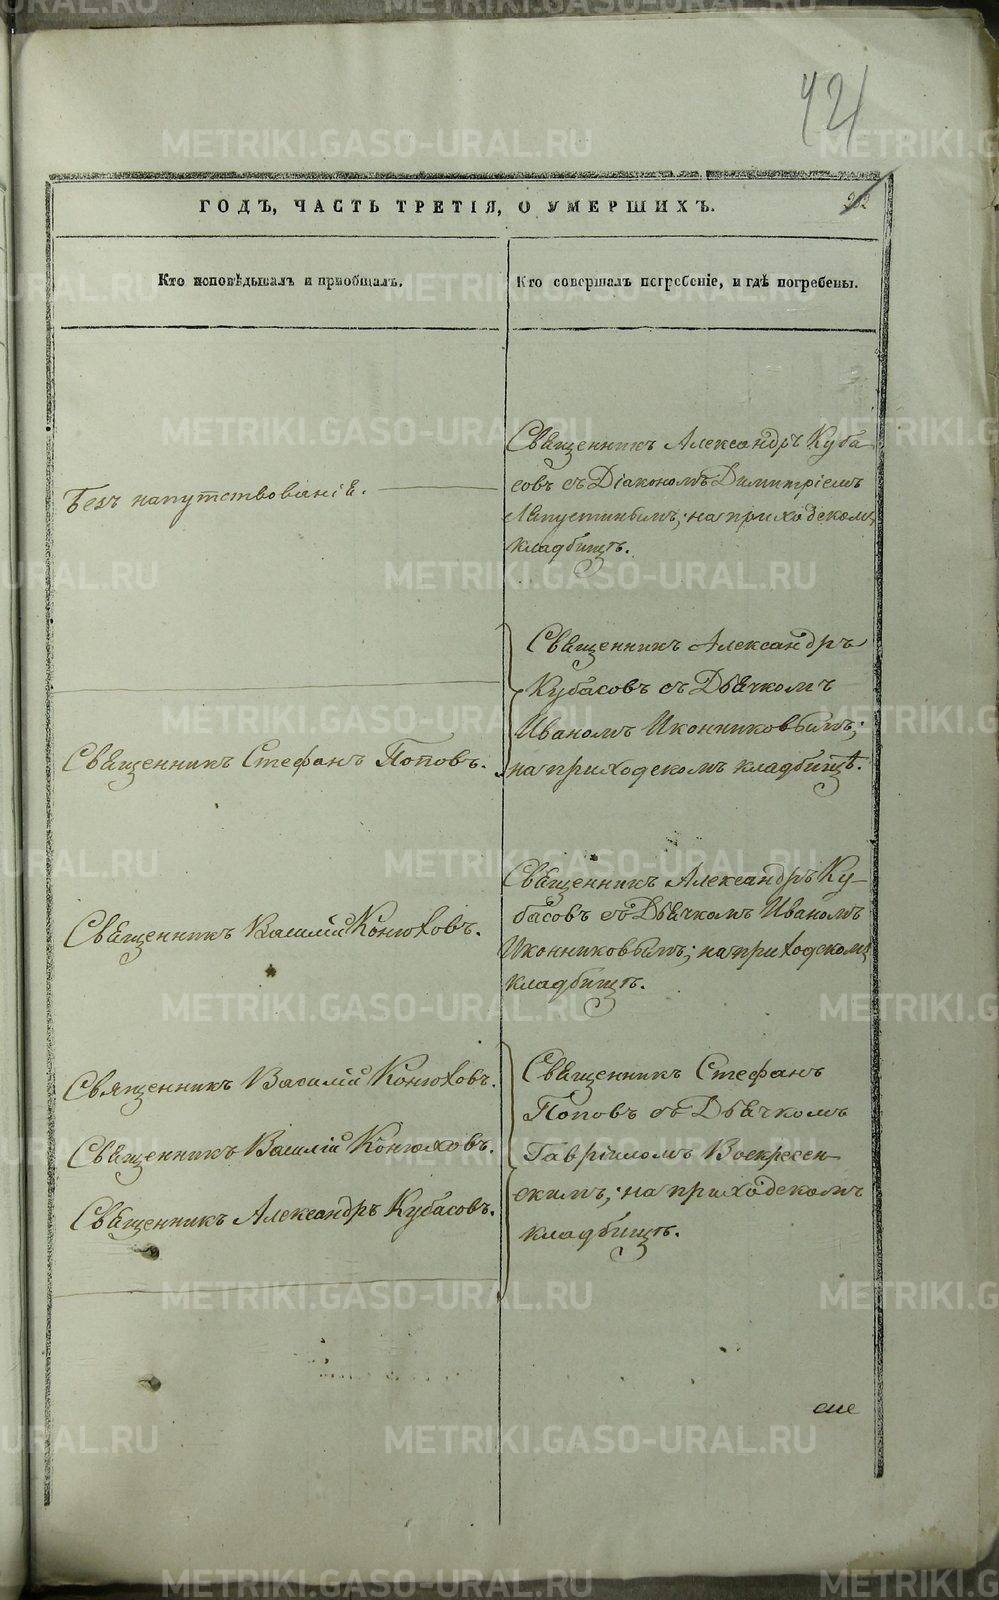 421
202
ГОДЪ, ЧАСТЬ ТРЕТІЯ, О УМЕРШИХЪ.
Кто исповѣдывалъ и пріобщалъ.
Кто совершалъ погребеніе, и гдѣ погребены.
Безъ напутствованіе.
Священникъ Александръ Куба
совъ съ Діакономъ Димитріемъ
Лапустинымъ; на приходскомъ
кладбищѣ.
Священникъ Стефанъ Поповъ.
Священникъ Александръ
Кубасовъ съ Дьячкомъ
Иваномъ Иконниковымъ;
на приходскомъ кладбищѣ.
Священникъ Василій Конюховъ.
Священникъ Александръ Ку-
басовъ съ Дьячкомъ Иваномъ
Иконниковымъ; на приходскомъ
кладбищѣ.
Священникъ Василій Конюховъ.
Священникъ Василій Конюховъ.
Священникъ Александръ Кубасовъ.
Священникъ Стефанъ
Поповъ съ Дьячкомъ
Гавріиломъ Воскресен-
скимъ; на приходскомъ
кладбищѣ.
METRIKI.GASO-URAL.RU